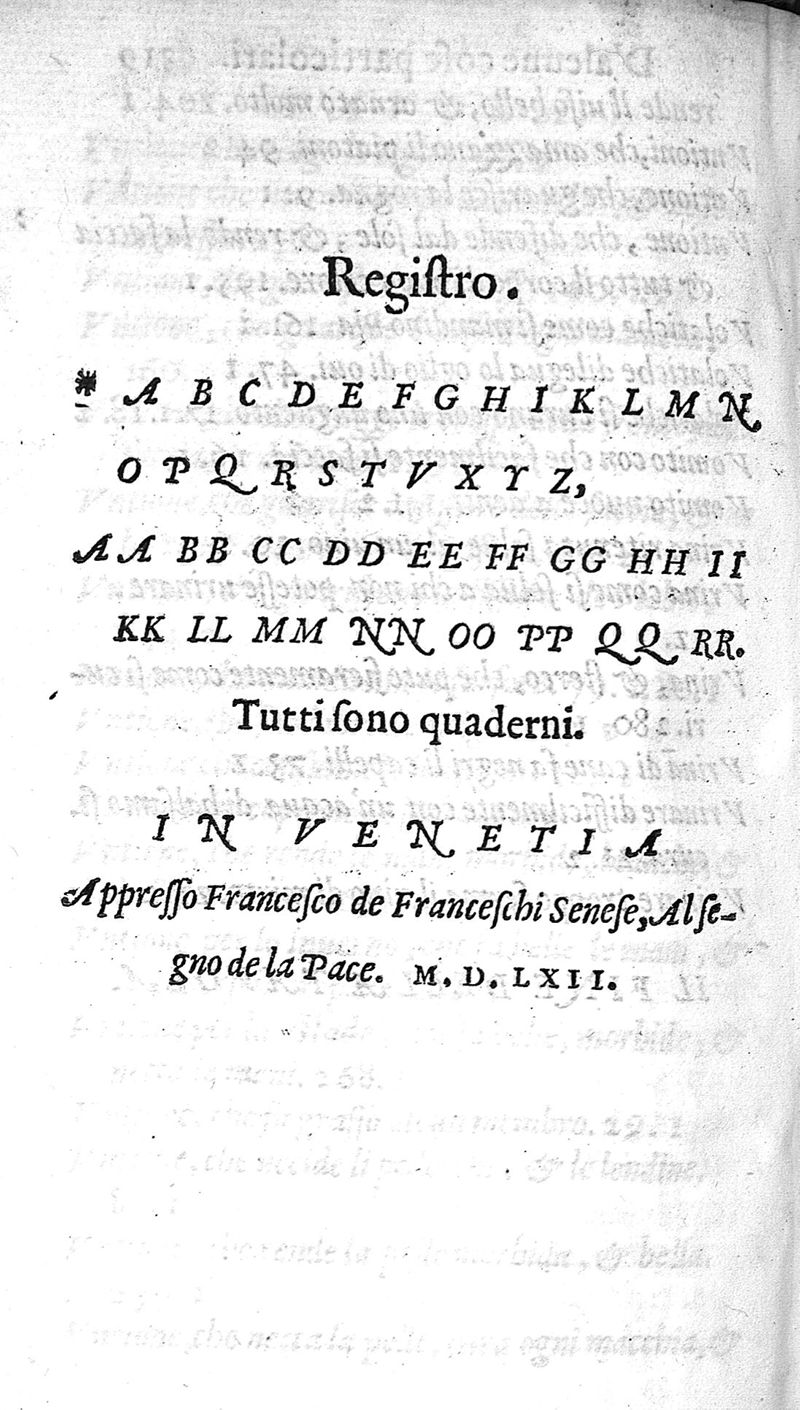 Regiſtro.
* A B C D E F G H I K L M N
O P Q R S T V X Y Z,
AA BB CC DD EE FF GG HH II
KK LL MM NN OO PP QQ RR.
Tutti ſono quaderni.
IN VENETIA
Appreſſo Franceſco de Franceſchi Seneſe, Al ſe-
gno de la Pace. M. D. LXII.